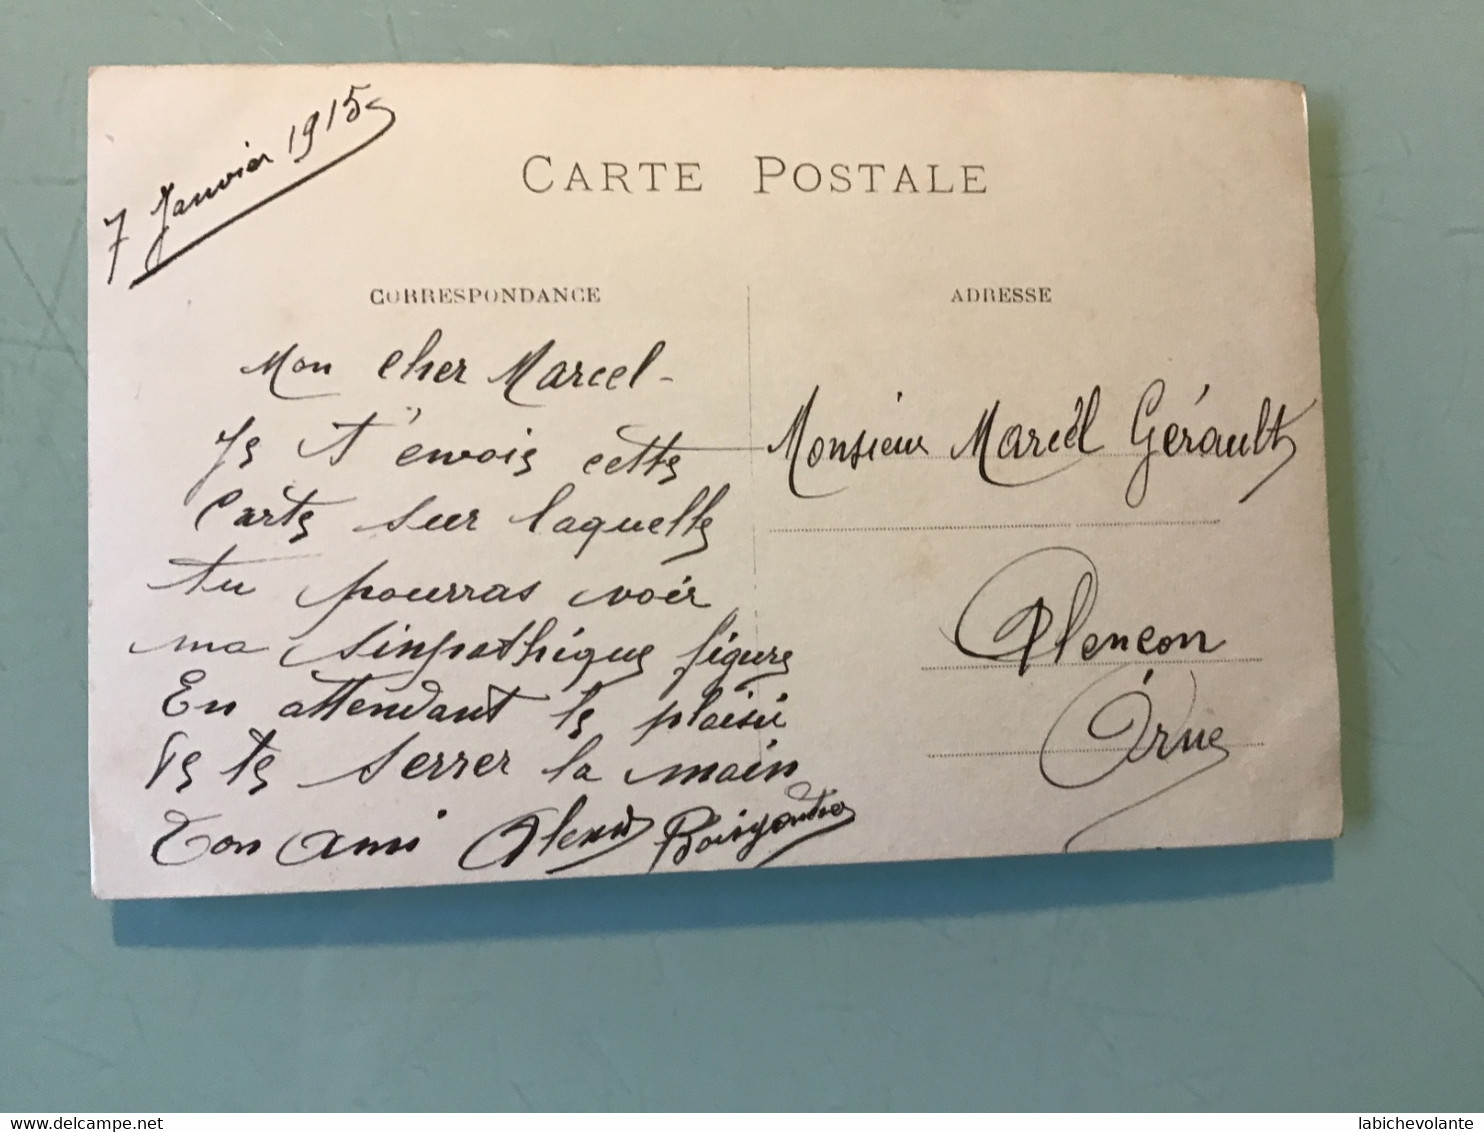 7 Janvier 1915
CARTE POSTALE
CORRESPONDANCE
Mon cher Marcel -
Je t'envoie cette
carte sur laquelle
tu pourras voir
ma sinpathique figure
En attendant le plaisir
de te serrer la main
Ton ami Alexis
ADRESSE
Monsieur Marcel Gérault
Alencon
Orne
labichevolante